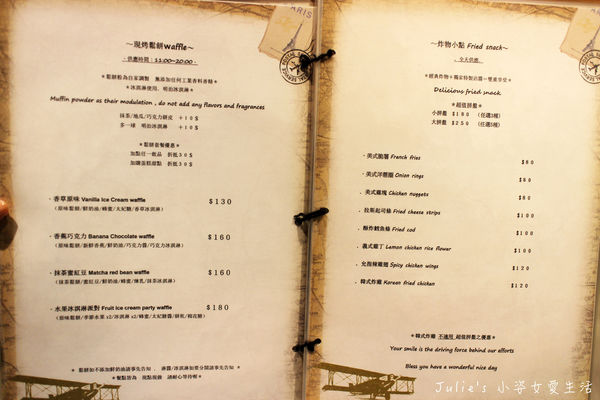 ～現烤鬆餅waffle～
供應時間：11:00~20:00
＊鬆餅粉為自家調製 無添加任何工業香料香精＊
＊冰淇淋使用 明治冰淇淋＊
Muffin powder as their modulation , do not add any flavors and fragrances
抹茶/地瓜/巧克力餅皮 ＋10$
多一球 明治冰淇淋 ＋10$
＊鬆餅套餐優惠＊
加點任一飲品 折抵30$
加購蛋糕甜點 折抵30$
·香草原味 Vanilla Ice Cream waffle $130
(原味鬆餅/鮮奶油/蜂蜜/太妃糖/香草冰淇淋)
·香蕉巧克力 Banana Chocolate waffle $160
(原味鬆餅/新鮮香蕉/鮮奶油/巧克力醬/巧克力冰淇淋)
·抹茶蜜紅豆 Matcha red bean waffle $160
(抹茶鬆餅/蜜紅豆/鮮奶油/蜂蜜/煉乳/抹茶冰淇淋)
·水果冰淇淋派對 Fruit ice cream party waffle $180
(原味鬆餅/季節水果 x2/冰淇淋 x2/蜂蜜/太妃糖醬/餅乾/棉花糖)
＊鬆餅如不添加鮮奶油請事先告知 ， 淋醬/冰淇淋如要分開請事先告知＊
＊餐點皆為 現點現做 請耐心等待喔＊
～炸物小點 Fried snack～
全天供應
＊經典炸物＊獨家特製沾醬＊雙重享受
Delicious fried snack
＊超值拼盤＊
小拼盤 $180 (任選3種)
大拼盤 $250 (任選5種)
·美式脆薯 French fries $80
·美式洋蔥圈 Onion rings $80
·美式雞塊 Chicken nuggets $80
·拉斯起司條 Fried cheese strips $100
·酥炸鱈魚條 Fried cod $100
·義式雞丁 Lemon chicken rice flower $100
·光指辣雞翅 Spicy chicken wings $120
·韓式炸雞 Korean fried chicken $120
＊韓式炸雞 不適用 超值拼盤之優惠＊
Your smile is the driving force behind our efforts
Bless you have a wonderful nice day
Julie's 小姿女愛生活